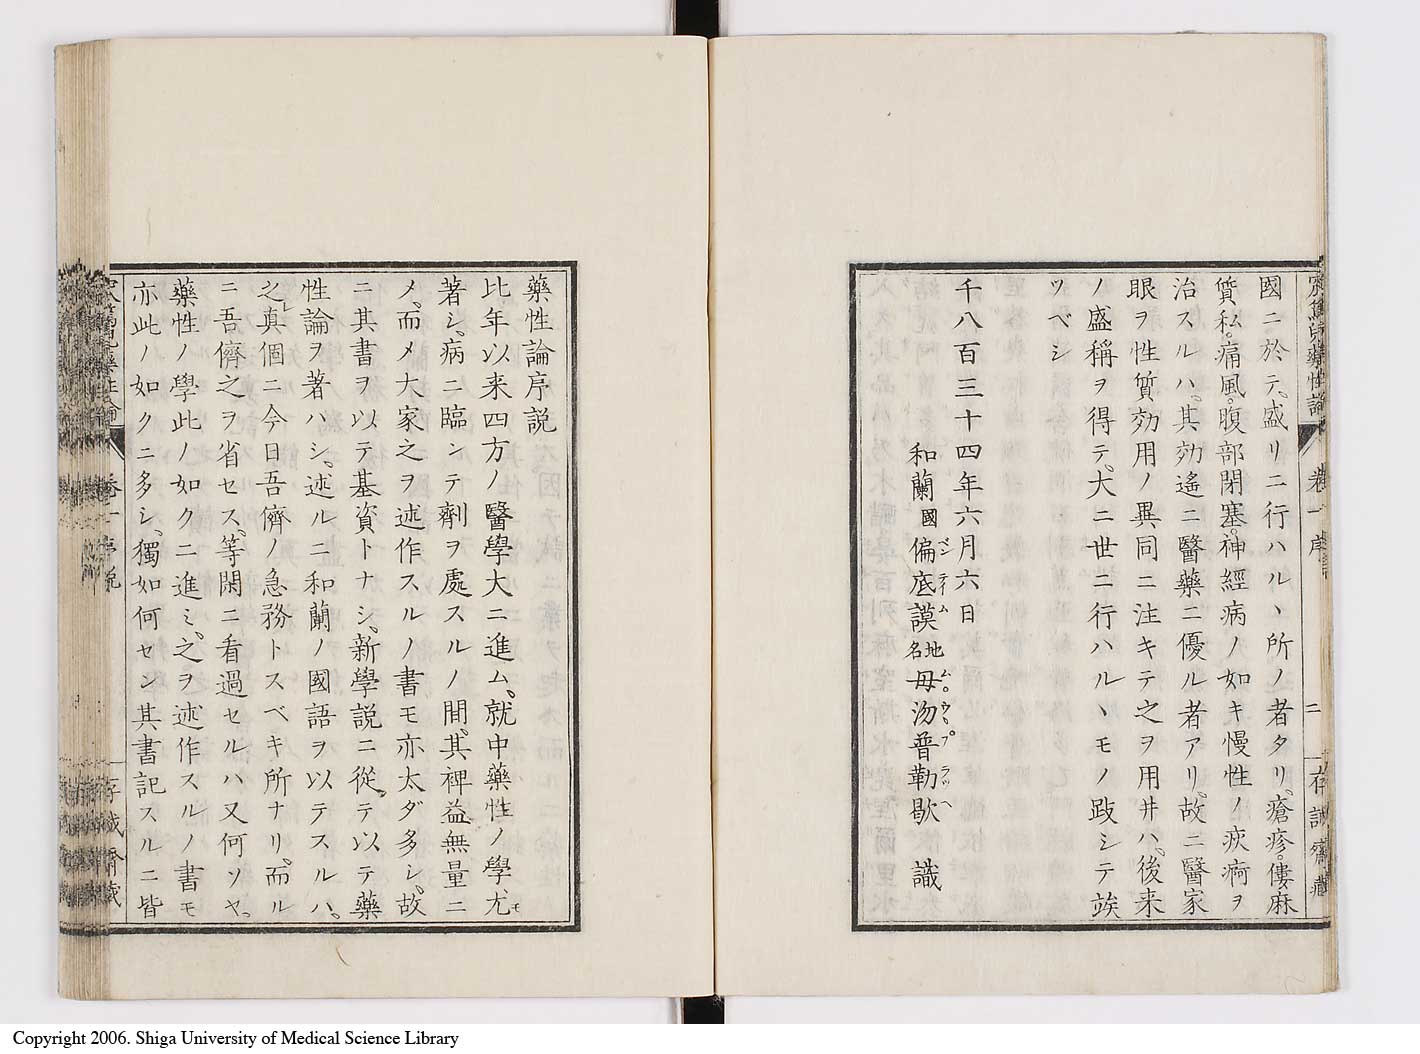 國ニ於テ、盛リニ行ハルヽ所ノ者タリ、瘡疹。僂麻
質私。痛風。腹部閉塞。神經病ノ如キ慢性ノ疾痾ヲ
治スルハ、其効遙ニ醫藥ニ優ル者アリ、故ニ醫家
眼ヲ性質効用ノ異同ニ注キテ之ヲ用井ハ、後来
ノ盛稱ヲ得テ、大ニ世ニ行ハルヽモノ跂シテ竢
ツベシ
千八百三十四年六月六日
和蘭國偏底謨地名毋沕普勒歇 識
藥性論序説
比年以来四方ノ醫學大ニ進ム、就中藥性ノ學尤モ
著シ、病ニ臨ンテ劑ヲ處スルノ間、其裨益無量ニ
メ、而メ大家之ヲ述作スルノ書モ亦太ダ多シ、故
ニ其書ヲ以テ基資トナシ、新學説ニ從テ以テ藥
性論ヲ著ハシ、述ルニ和蘭ノ國語ヲ以テスルハ、
之レ真個ニ今日吾儕ノ急務トスベキ所ナリ、而ル
ニ吾儕之ヲ省セス、等閑ニ看過セルハ又何ソヤ、
藥性ノ學此ノ如クニ進ミ、之ヲ述作スルノ書モ
亦此ノ如クニ多シ、獨如何セン其書記スルニ皆
卷一序説
存誠齋藏